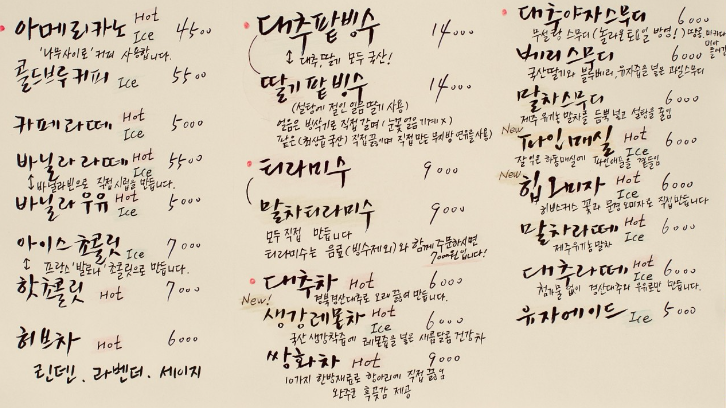 아메리카노 Hot Ice 4500
'나무사이로' 커피 사용합니다.
콜드브루커피 Ice 5500
카페라떼 Hot Ice 5000
바닐라라떼 Hot Ice 5500
바닐라빈으로 직접 시럽을 만듭니다.
바닐라우유 Hot Ice 5000
아이스쵸콜릿 Ice 7000
프랑스 '발로나' 쵸콜릿으로 만듭니다.
핫쵸콜릿 Hot 7000
허브차 Hot 6000
린덴. 라벤더. 세이지
대추팥빙수 14000
대추, 딸기 모두 국산!
딸기팥빙수 14000
(설탕에 절인 얼음딸기 사용)
얼음은 빙삭기로 직접 갈며 (눈꽃얼음기계 X)
팥은 국산 직접 끓이며 직접 만든 연유를 사용)
티라미수 9000
말차티라미수 9000
모두 직접 만듭니다
티라미수는 음료(빙수제외)와 함께 주문하시면
7000원입니다!
대추차 Hot 6000
경북경산대추로 오래 끓여 만듭니다.
New!
생강레몰차 Hot Ice 6000
국산 생강착즙에 레몬즙을 넣은 새콤달콤 건강차
쌍화차 Hot 9000
10가지 한방재료로 항아리에 직접 끓임
완주군 흑곶감 제공
대추야자스무디 6000
무설탕 스무디 (놀라운토요일 방영!)
베리스무디 6000
국산딸기와 블루베리, 유자즙을 넣은 과일스무디
말차스무디 6000
제주 유기농 말차를 듬뿍 넣고 설탕을 줄임
New
파인매실 Hot Ice 6000
잘 익은 하동매실에 파인애플을 곁들임
New
힙오미자 Hot Ice 6000
히비스커스 꽃과 문경 오미자로 직접만듭니다
말차라떼 Hot Ice 6000
제주유기농말차
대추라떼 Hot Ice 6000
첨가물 없이 경산대추와 우유로만 만듭니다.
유자에이드 Ice 5000